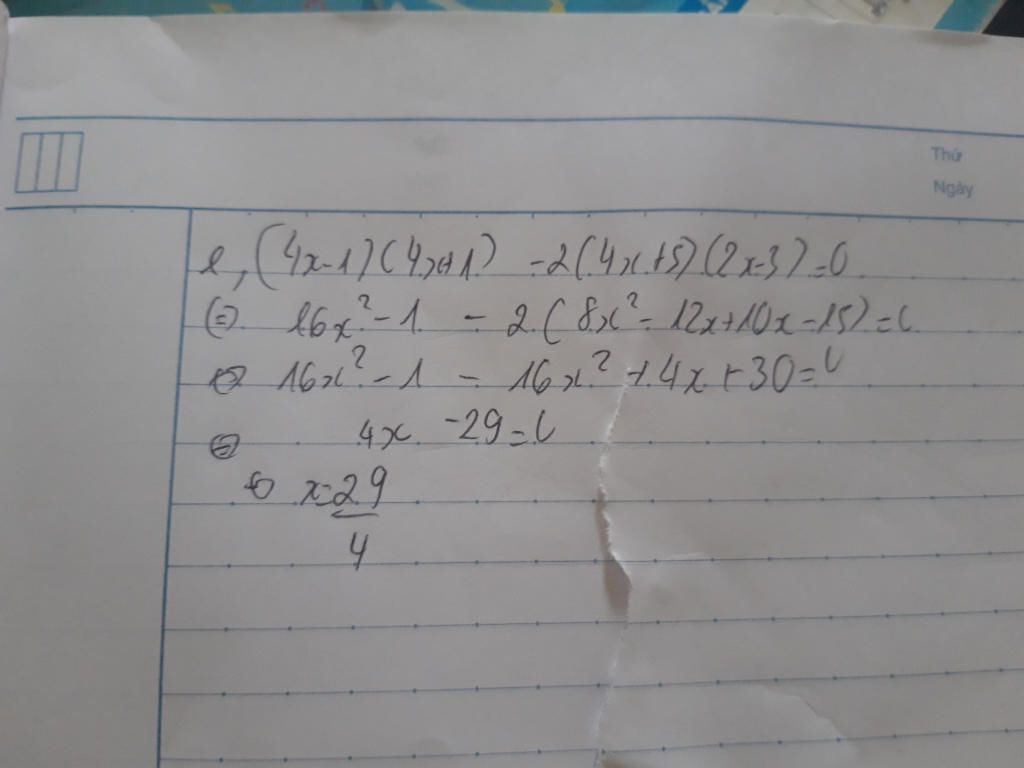 Thứ
Ngày
e, (4x-1)(4x+1) -2(4x+5)(2x-3)=0
(=) 16x² - 1 - 2(8x² - 12x+10x-15)=0
<=> 16x² - 1 - 16x² + 4x + 30=0
<=> 4x -29=0
<=> x=29/4